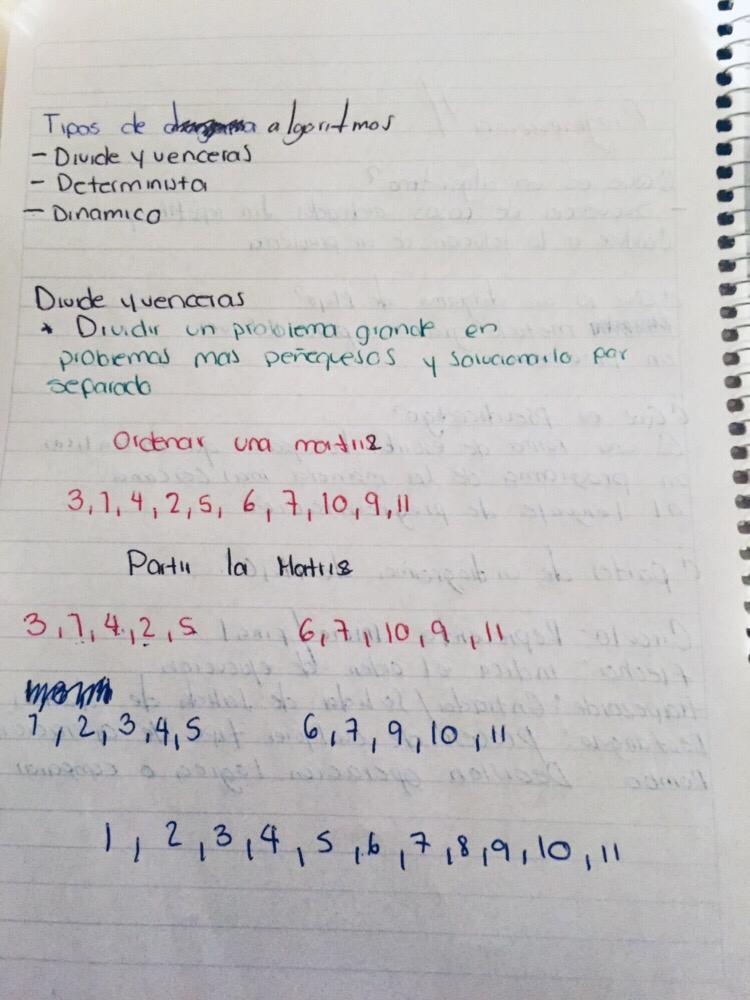 Tipos de algoritmos
- Divide y venceras
- Determinista
- Dinamico
Divide y venceras
* Dividir un problema grande en
problemas mas peñequesos y solucionarlo por
separado
Ordenar una matriz
3, 1, 4, 2, 5, 6, 7, 10, 9, 11
Partir la Matriz
3, 1, 4, 2, 5 6, 7, 10, 9, 11
1, 2, 3, 4, 5 6, 7, 9, 10, 11
1, 2, 3, 4, 5, 6, 7, 8, 9, 10, 11